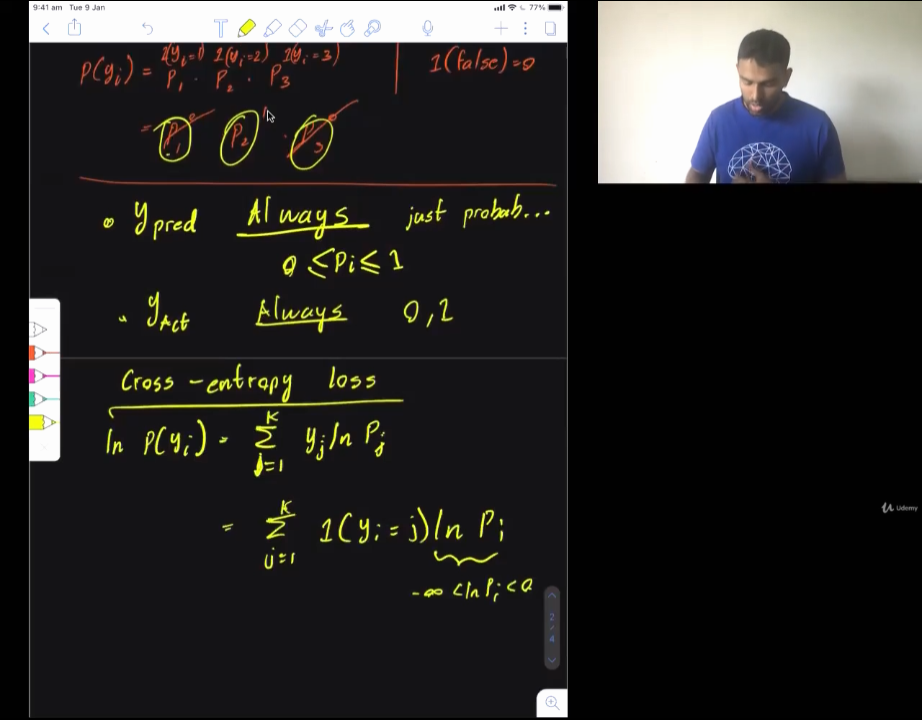 9:41 am Tue 9 Jan 77%
1(yi=1) 1(yi=2) 1(yi=3)
P(yi) = P1 . P2 . P3 1(false)=0
= P1 0 P2 1 . P3 0
ypred Always just probab...
0 ≤ Pi ≤ 1
yAct Always 0,1
Cross-entropy loss
ln P(yi) = K Σ j=1 yj ln Pj
= K Σ j=1 1(yi = j) ln Pi
-∞ < ln Pi < 0
2/4
Udemy